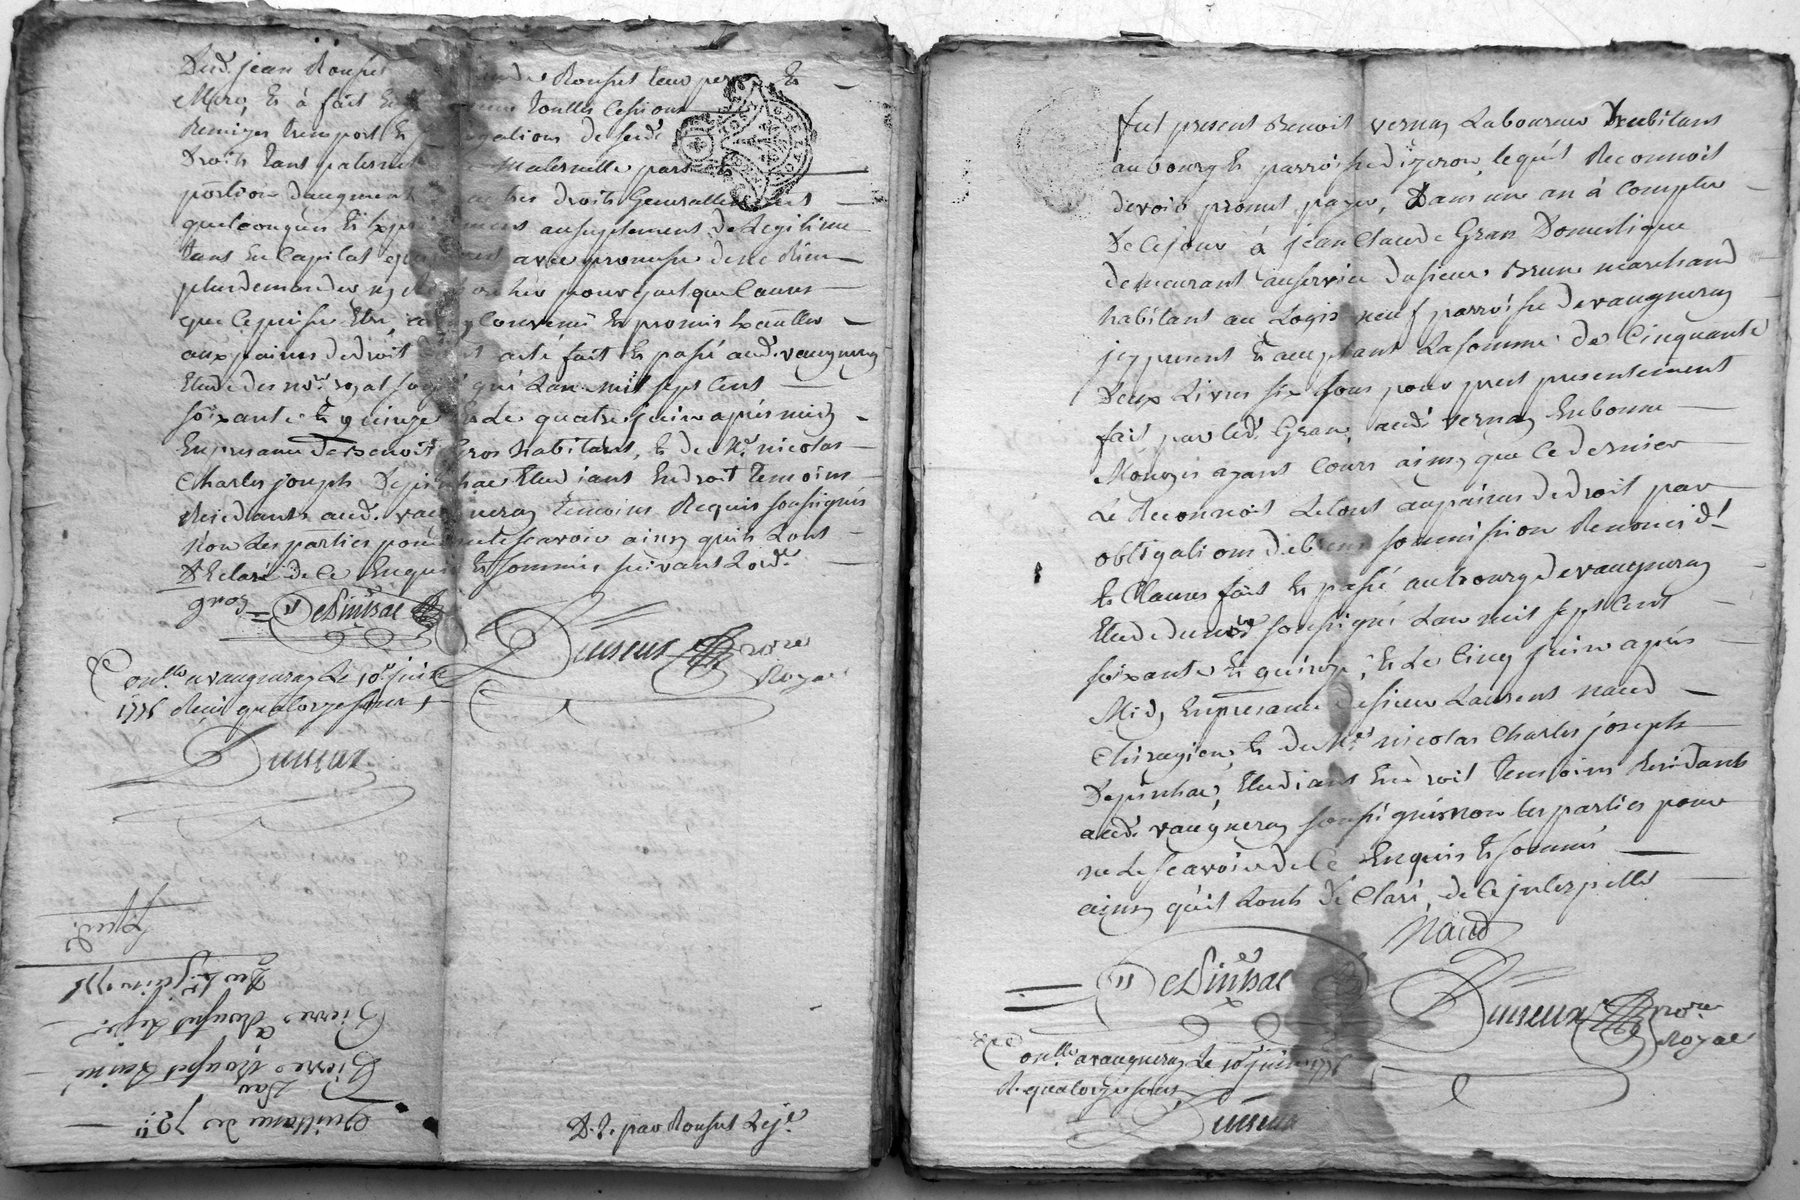 Dud. jean Rouset Rouset leur pere Et
Mere, Et à fait touttes Cessions
Remizes transport Et de sesd.
Droits tant paternels Maternelle part
portion daugment autres droits Generallement
quelconques Et au suplement de Legitime
tant En Capital avec promesse de ne Rien
plus demander ny pour quelque Causes
que ce puisse Etre, Convenu Et promis Executter
aux paines de droit acte fait Et passé aud. vaugneray
Etude du nore. royal soussigné Lan mil sept Cent
soixante Et quinze Et Le quatre juin après midy
En presance de Benoit Gros habitant, Et de Mr. nicolas
Charles joseph Depinhac Etudiant En droit temoins
Residants aud. vaugneray temoins Requis soussignés
Non Les parties pour ne le scavoir ainsy quils Lont
Declaré de ce Enquis Et sommés suivant Lord.
gros = DePinhac
nore
Royal
Conllé a vaugneray Le 10e juin
1775 Reçu quatorze sous

Quittance de 72 lt
Par
Pierre Rouset
a
Pierre Rouset
Du 4e juin 1775
Exped.
D. L. par Rouset
fut present Benoit vernay Laboureur habitant
au bourg Et parroisse dizeron lequel Reconnoit
devoir promet payer, Dans une an à Compter
De Cejour à jean Claude Gran Domestique
demeurant au service du sieur Brun marchand
habitant au Logis neuf parroisse de vaugneray
jcy present Et aceptant La somme de Cinquante
Deux Livres six sous pour prest presentement
fait par led. Gran, aud. vernay En bonne
Monoye ayant Cours ainsy que Ce dernier
Le Reconnoit Le tout aux paines de droit par
obligations de biens soumission Renonciaons
Et Clauses fait Et passé au bourg de vaugneray
Etude du nore soussigné Lan mil sept Cent
soixante Et quinze, Et Le Cinq juin après
Midy En presance de sieur Laurent naud
Chirugien, Et de Mr. nicolas Charles joseph
Depinhac, Etudiant En droit temoins Residants
aud. vaugneray soussignés non Les parties pour
ne Le scavoir de Ce Enquis Et sommés
ainsy quil Lont Declaré, de Ce jnterpellés
Naud
DePinhac
nore
Royal
Conllé a vaugneray Le 10e juin 1775
R. quatorze sous